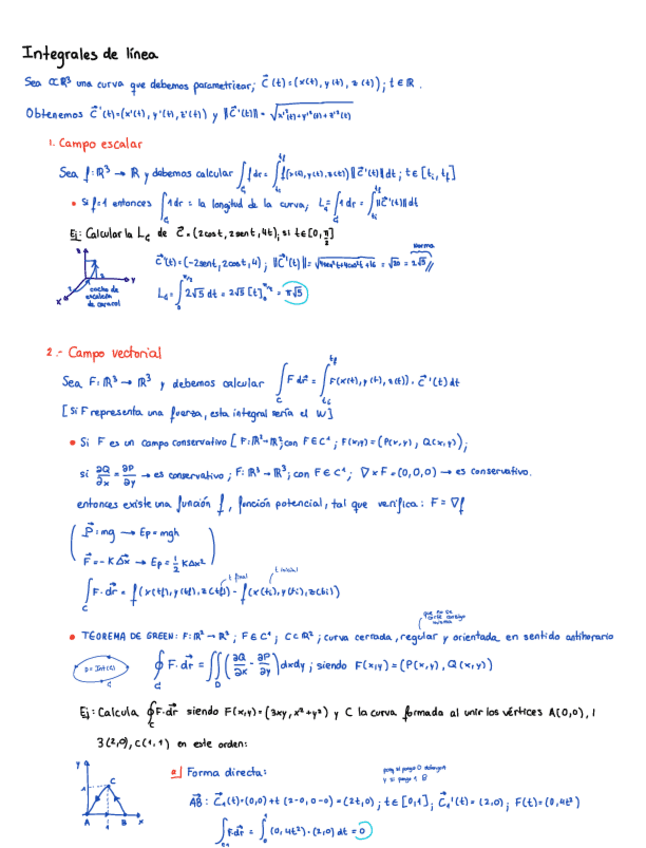 Integrales de línea
Sea C⊂R³ una curva que debemos parametrizar; C⃗(t)=(x(t), y(t), z(t)); t∈R.
Obtenemos C⃗'(t)=(x'(t), y'(t), z'(t)) y ||C⃗'(t)|| = √(x'²(t)+y'²(t)+z'²(t))
1. Campo escalar
Sea f:R³→R y debemos calcular ∫_C f dr = ∫_{ti}^{tf} f(x(t), y(t), z(t)) ||C⃗'(t)|| dt; t∈[ti, tf]
• Si f=1 entonces ∫_C 1 dr = la longitud de la curva; L_C = ∫_C 1 dr = ∫_{ti}^{tf} ||C⃗'(t)|| dt
Ej: Calcular la L_C de C⃗=(2cost, 2sent, 4t), si t∈[0, π/2]
Norma
C⃗'(t)=(-2sent, 2cost, 4); ||C⃗'(t)|| = √(4sen²t+4cos²t+16) = √20 = 2√5
L_C = ∫_0^{π/2} 2√5 dt = 2√5 [t]_0^{π/2} = π√5
z
y
x
2
de caracol
2.- Campo vectorial
Sea F:R³→R³ y debemos calcular ∫_C F dr⃗ = ∫_{ti}^{tf} F(x(t), y(t), z(t)) · C⃗'(t) dt
[Si F representa una fuerza, esta integral sería el W]
• Si F es un campo conservativo [F:R²→R², con F∈C¹; F(x,y)=(P(x,y), Q(x,y));
si ∂Q/∂x = ∂P/∂y → es conservativo; F:R³→R³, con F∈C¹; ∇×F=(0,0,0) → es conservativo.
entonces existe una función f, función potencial, tal que verifica: F=∇f
(P⃗=mg → Ep=mgh
F⃗=-KΔx⃗ → Ep=½KΔx²)
t final t inicial
∫_C F·dr⃗ = f(x(tf), y(tf), z(tf)) - f(x(ti), y(ti), z(ti))
que no se corte consigo misma
• TEOREMA DE GREEN: F:R²→R²; F∈C¹; C⊂R²; curva cerrada, regular y orientada en sentido antihorario
D=Int(C)
C
∮_C F·dr⃗ = ∬_D (∂Q/∂x - ∂P/∂y) dxdy; siendo F(x,y)=(P(x,y), Q(x,y))
Ej: Calcula ∮_C F·dr⃗ siendo F(x,y)=(3xy, x²+y²) y C la curva formada al unir los vértices A(0,0),
B(2,0), C(1,1) en este orden:
y
C
1
A 1 B x
a) Forma directa:
AB⃗: C⃗₁(t)=(0,0)+t(2-0, 0-0)=(2t,0); t∈[0,1]; C⃗₁'(t)=(2,0); F(t)=(0,4t²)
∫_{C1} F·dr⃗ = ∫_0^1 (0,4t²)·(2,0) dt = 0